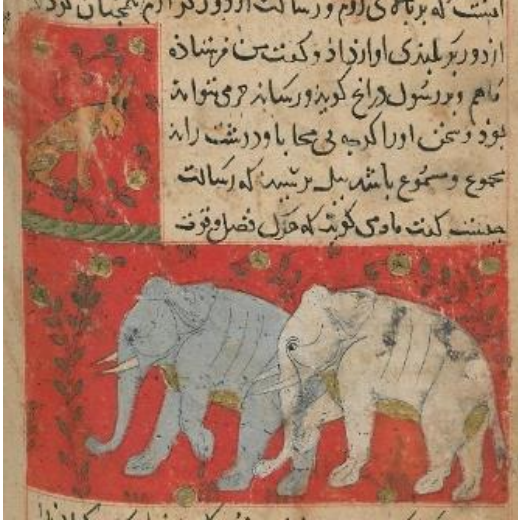 و رسالت از دور گزارم همچنان کرد
از دور بر بلندی اواز داذ و گفت من فرستاده
ماهم و بر رسول درانچ گوید و رساند حرجی نتواند
بوذ و سخن او را اگرچه بی محابا و درشت راند
و مسموع باشد پیل پرسید که رسالت
چیست گفت ماه می گوید که هرک فضل و قوت